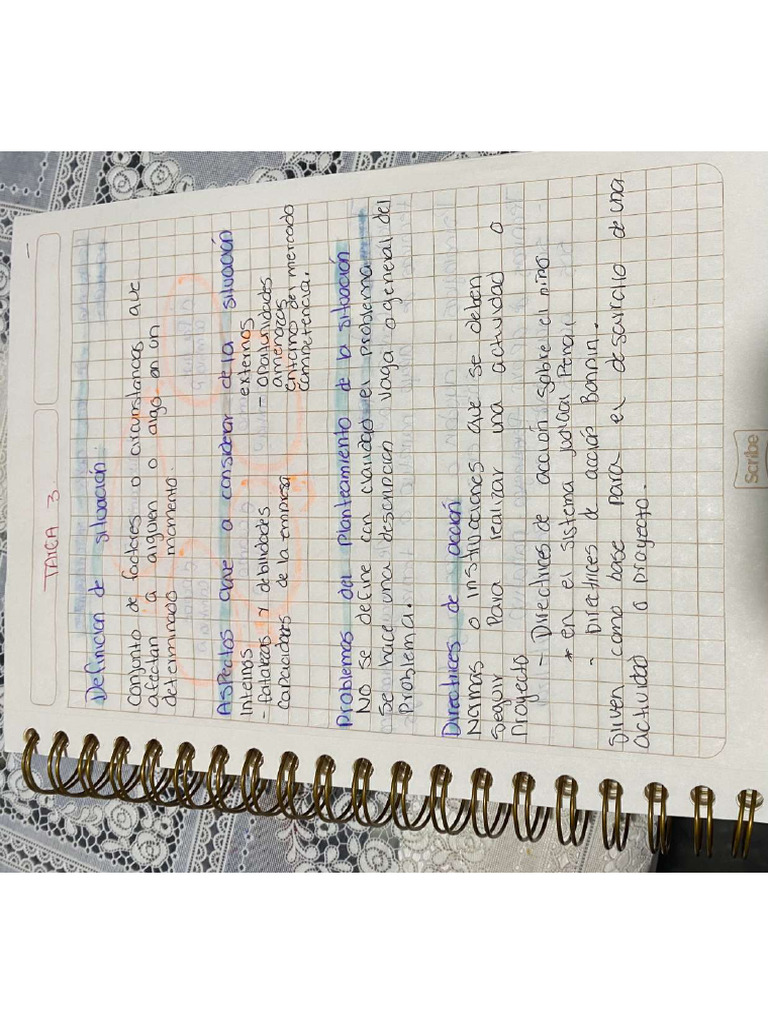 TAREA 3.
Definición de situación.
Conjunto de factores o circunstancias que
afectan a alguien o algo en un
determinado momento.
Aspectos clave a considerar de la situación
Internos
- fortalezas y debilidades
capacidades de la empresa
externos
- oportunidades
amenazas
Entorno del mercado
competencia.
Problemas del planteamiento de la situación
No se define con claridad el problema
Se hace una descripción vaga o general del
Problema.
Directrices de acción
Normas o instrucciones que se deben
seguir para realizar una actividad o
Proyecto
- Directrices de acción sobre el niño
* en el sistema judicial Penal
- Directrices de acción Bonnin.
Sirven como base para el desarrollo de una
actividad o proyecto.
Scribe